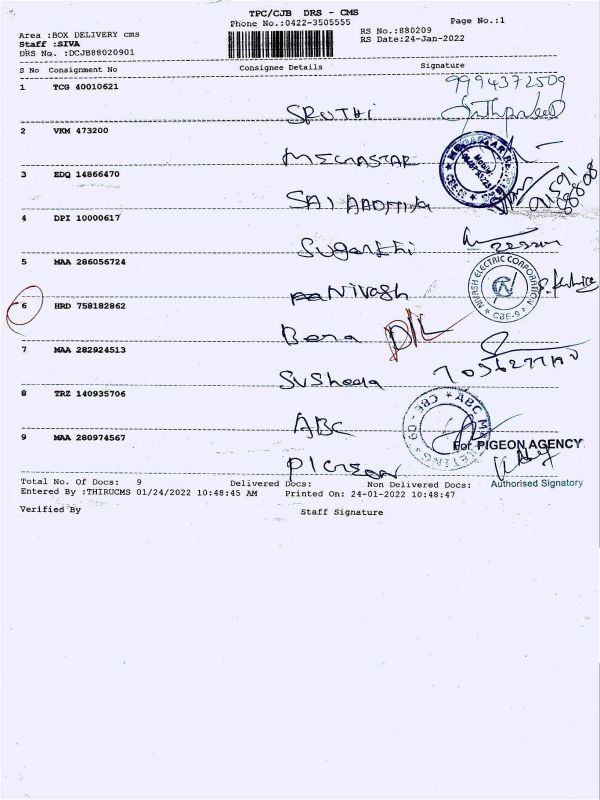 TPC/CJB DRS - CMS
Phone No.:0422-3505555
Page No.:1
Area :BOX DELIVERY cms
RS No.:880209
Staff :SIVA
RS Date:24-Jan-2022
DRS No. :DCJB88020901
S No Consignment No Consignee Details Signature
1 TCG 40010621 SRUTHI 9994372509
2 VKM 473200 MEGASTAR
3 EDQ 14866470 SAI AADHIYA
4 DPI 10000617 Suganthi
5 MAA 286056724 Nivash
NIVASH ELECTRIC CORPORATION
* CBE-9 *
6 HRD 758182862 Bena D/L
7 MAA 282924513 Susheela
8 TRZ 140935706 ABC
* ABC MARKETING * CBE - 09
9 MAA 280974567 PIGEON
For PIGEON AGENCY
Authorised Signatory
Total No. Of Docs: 9 Delivered Docs: Non Delivered Docs:
Entered By :THIRUCMS 01/24/2022 10:48:45 AM Printed On: 24-01-2022 10:48:47
Verified By Staff Signature